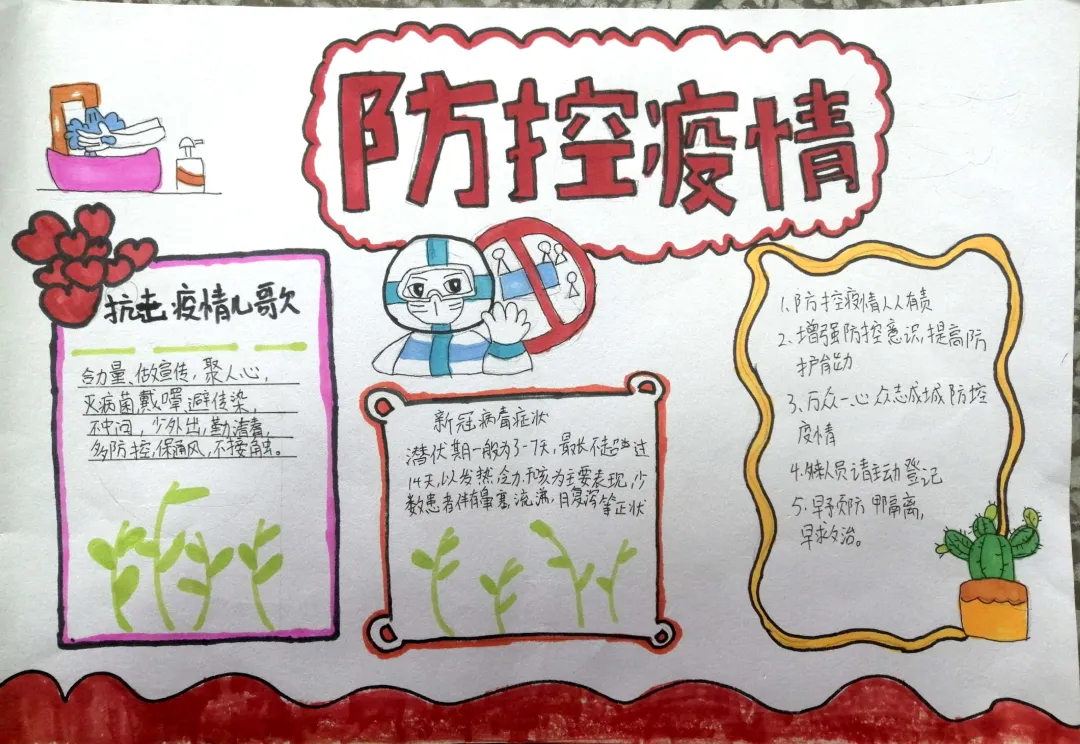 防控疫情
抗击疫情儿歌
合力量、做宣传,聚人心,
灭病菌,戴罩,避传染,
少外出,勤清毒,
多防控,保通风,不接触。
新冠病毒症状
潜伏期一般为3-7天,最长不超过
14天,以发热、乏力、干咳为主要表现,少
数患者伴有鼻塞,流涕,腹泻等症状
1、防控疫情人人有责
2、增强防控意识,提高防
护能力
3、万众一心众志成城防控
疫情
4、人员请主动登记
5、早预防早隔离,
早救治。